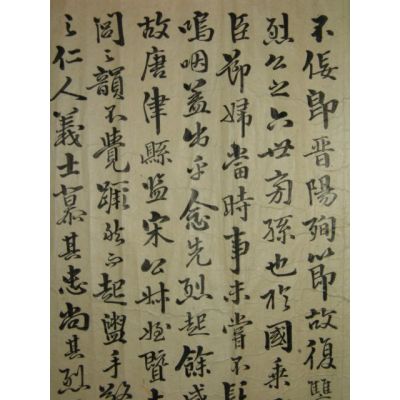 不佞即晋陽殉節故復
烈公之六世旁孫也於國乘
臣節婦當時事未嘗不
嗚咽益出乎念先烈起餘感
故唐津縣监宋公妹姪暨
闾之韻不覺躍然而起盥手
之仁人義士慕其忠尚其烈